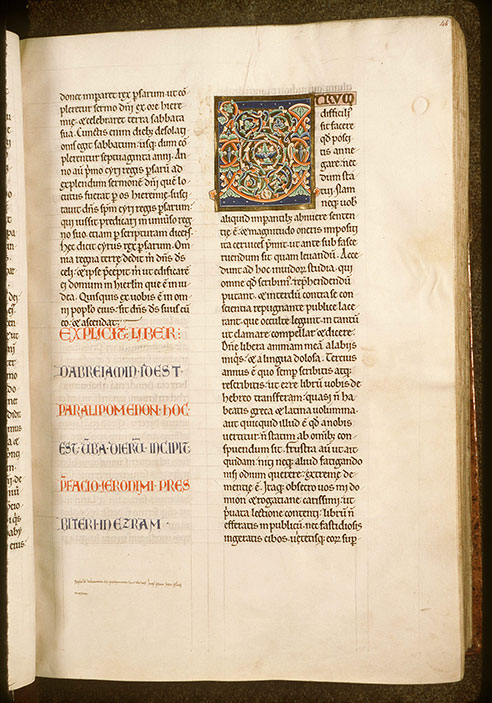 46
donec imparet rex psarum ut cō
pleretur sermo dñi ex ore hiere
mie. & celebraret terra sabbata
sua. Cunctis enim dieb; desolati
onis egit sabbatum. usq; dum cō
plerentur septuaginta anni. An
no aū pmo cyri regis psarū ad
explendum sermonē dñi quē lo
cutus fuerat p os hieremie. susci
tauit dñs spm cyri regis psarum
qui iussit predicari in uniuso reg
no suo etiam p scripturam dicens.
Hec dicit cyrus rex psarum. Om
nia regna terre dedit m dñs ds
celi. & ipse pcepit m ut edificarē
ei domum in hierlm que ē in iu
dea. Quisquis ex uobis ē in om
ni poplo eius. sit dñs ds suus cū
eo. & ascendat.
EXPLICIT LIBER
DABREIAMIN IDEST
PARALIPOMENON HOC
EST UBA DIERU INCIPIT
PFACIO IERONIMI PRES
BITERI IN EZRAM
UTRUM
difficili
sit facere
qd posci
tis an ne
gare. nec
dum sta
tui. Nam
neq; uob
aliquid impantib; abnuere senten
tie ē. & magnitudo oneris impositi
ita ceruices pmit. ut ante sub fasce
ruendum sit quam leuandū. Acce
dunt ad hoc inuidor studia. qui
omne qd scribim. reprehendendū
putant. & interdū contra se con
scientia repugnante. publice lace
rant. que occulte legunt. in tantū
ut clamare compellar & dicere.
Dñe libera animam meā a labiis
iniqs. & a lingua dolosa. Tercius
annus ē quo semp scribitis atq;
rescribitis. ut ezre librū uobis de
hebreo transferam. quasi ñ ha
beatis greca & latina uolumina.
aut quicquid illud ē qd a nobis
uertitur. ñ statim ab omib; con
spuendum sit. frustra aū ut ait
quidam niti. neq; aliud fatigando
nisi odium querere. extreme de
mentie ē. Itaq; obsecro uos mi do
mion & rogatiane carissimi. ut
puata lectione contenti. librū ñ
efferatis in publicū. nec fastidiosis
ingeratis cibos. uitetisq; eor sup